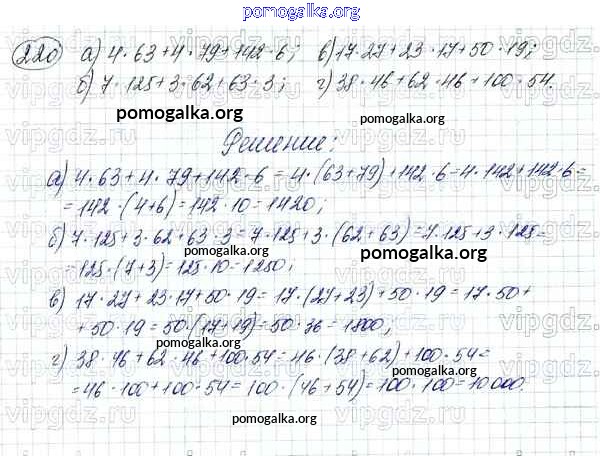 pomogalka.org
220 а) 4·63+4·79+142·6; в) 17·27+23·17+50·19;
б) 7·125+3·62+63·3; г) 38·46+62·46+100·54.
pomogalka.org pomogalka.org
Решение:
а) 4·63+4·79+142·6=4·(63+79)+142·6=4·142+142·6=
=142·(4+6)=142·10=1420;
б) 7·125+3·62+63·3=7·125+3·(62+63)=7·125+3·125=
=125·(7+3)=125·10=1250;
pomogalka.org pomogalka.org
в) 17·27+23·17+50·19=17·(27+23)+50·19=17·50+
+50·19=50·(17+19)=50·36=1800;
г) 38·46+62·46+100·54=46·(38+62)+100·54=
=46·100+100·54=100·(46+54)=100·100=10000.
pomogalka.org pomogalka.org
vipgdz.ru
pomogalka.org